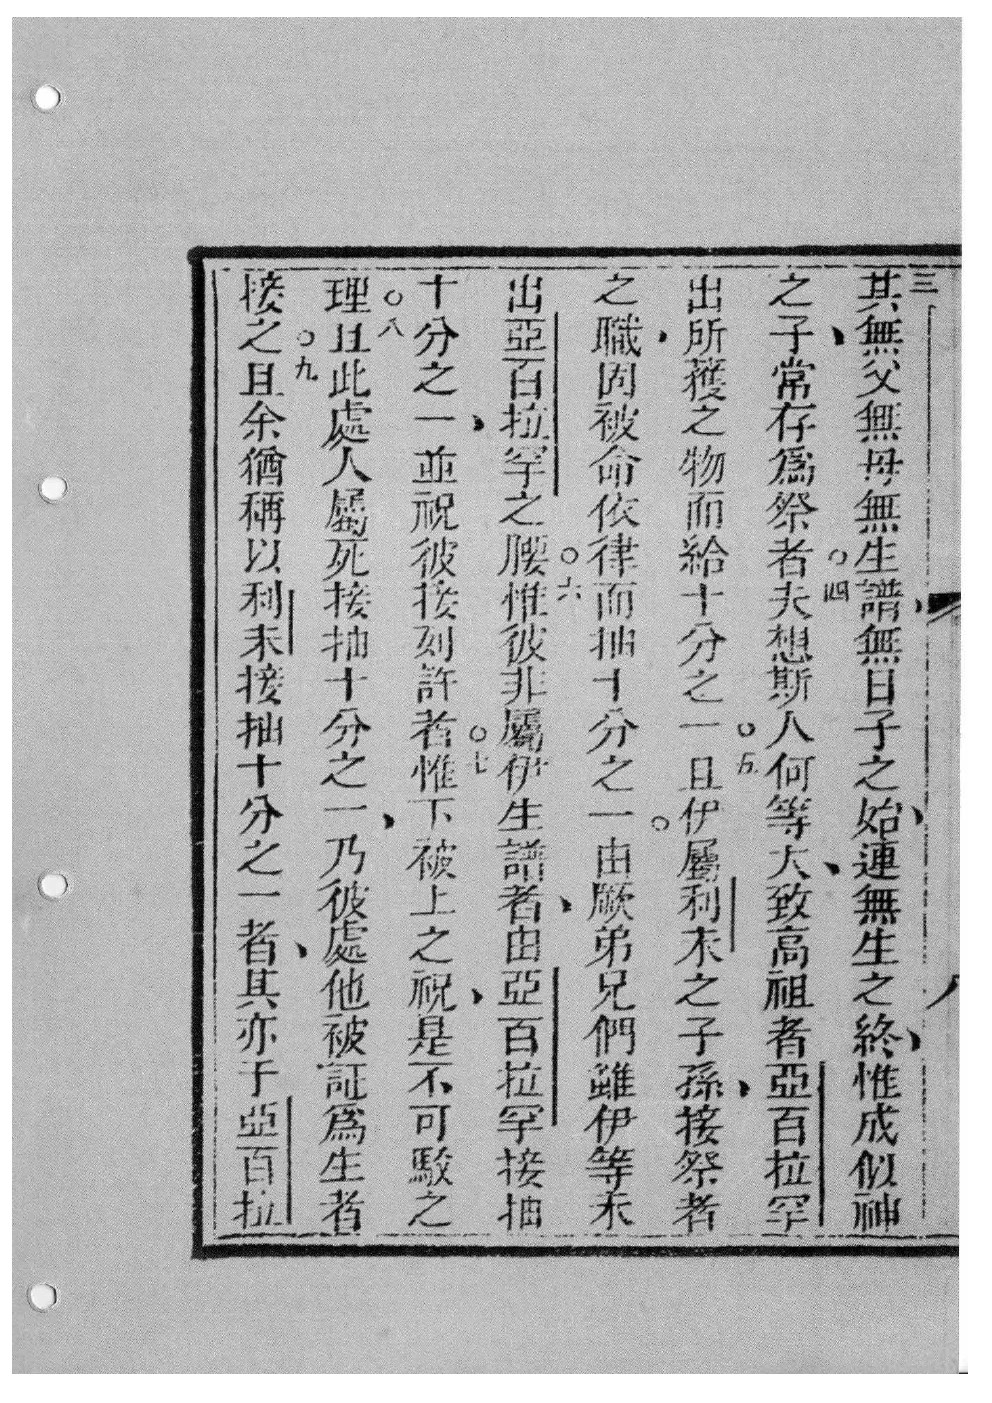 三
其無父無母無生譜無日子之始連無生之終惟成似神
之子常存為祭者○四夫想斯人何等大致高祖者亞百拉罕
出所獲之物而給十分之一○五且伊屬利未之子孫接祭者
之職固被命依律而抽十分之一○由厥弟兄們雖伊等未
出亞百拉罕之腰○六惟彼非屬伊生譜者由亞百拉罕接抽
十分之一並祝彼接刻許者○七惟下被上之祝是不可駁之
理○八且此處人屬死接抽十分之一乃彼處他被証為生者
接之○九且余猶稱以利未接抽十分之一者其亦于亞百拉